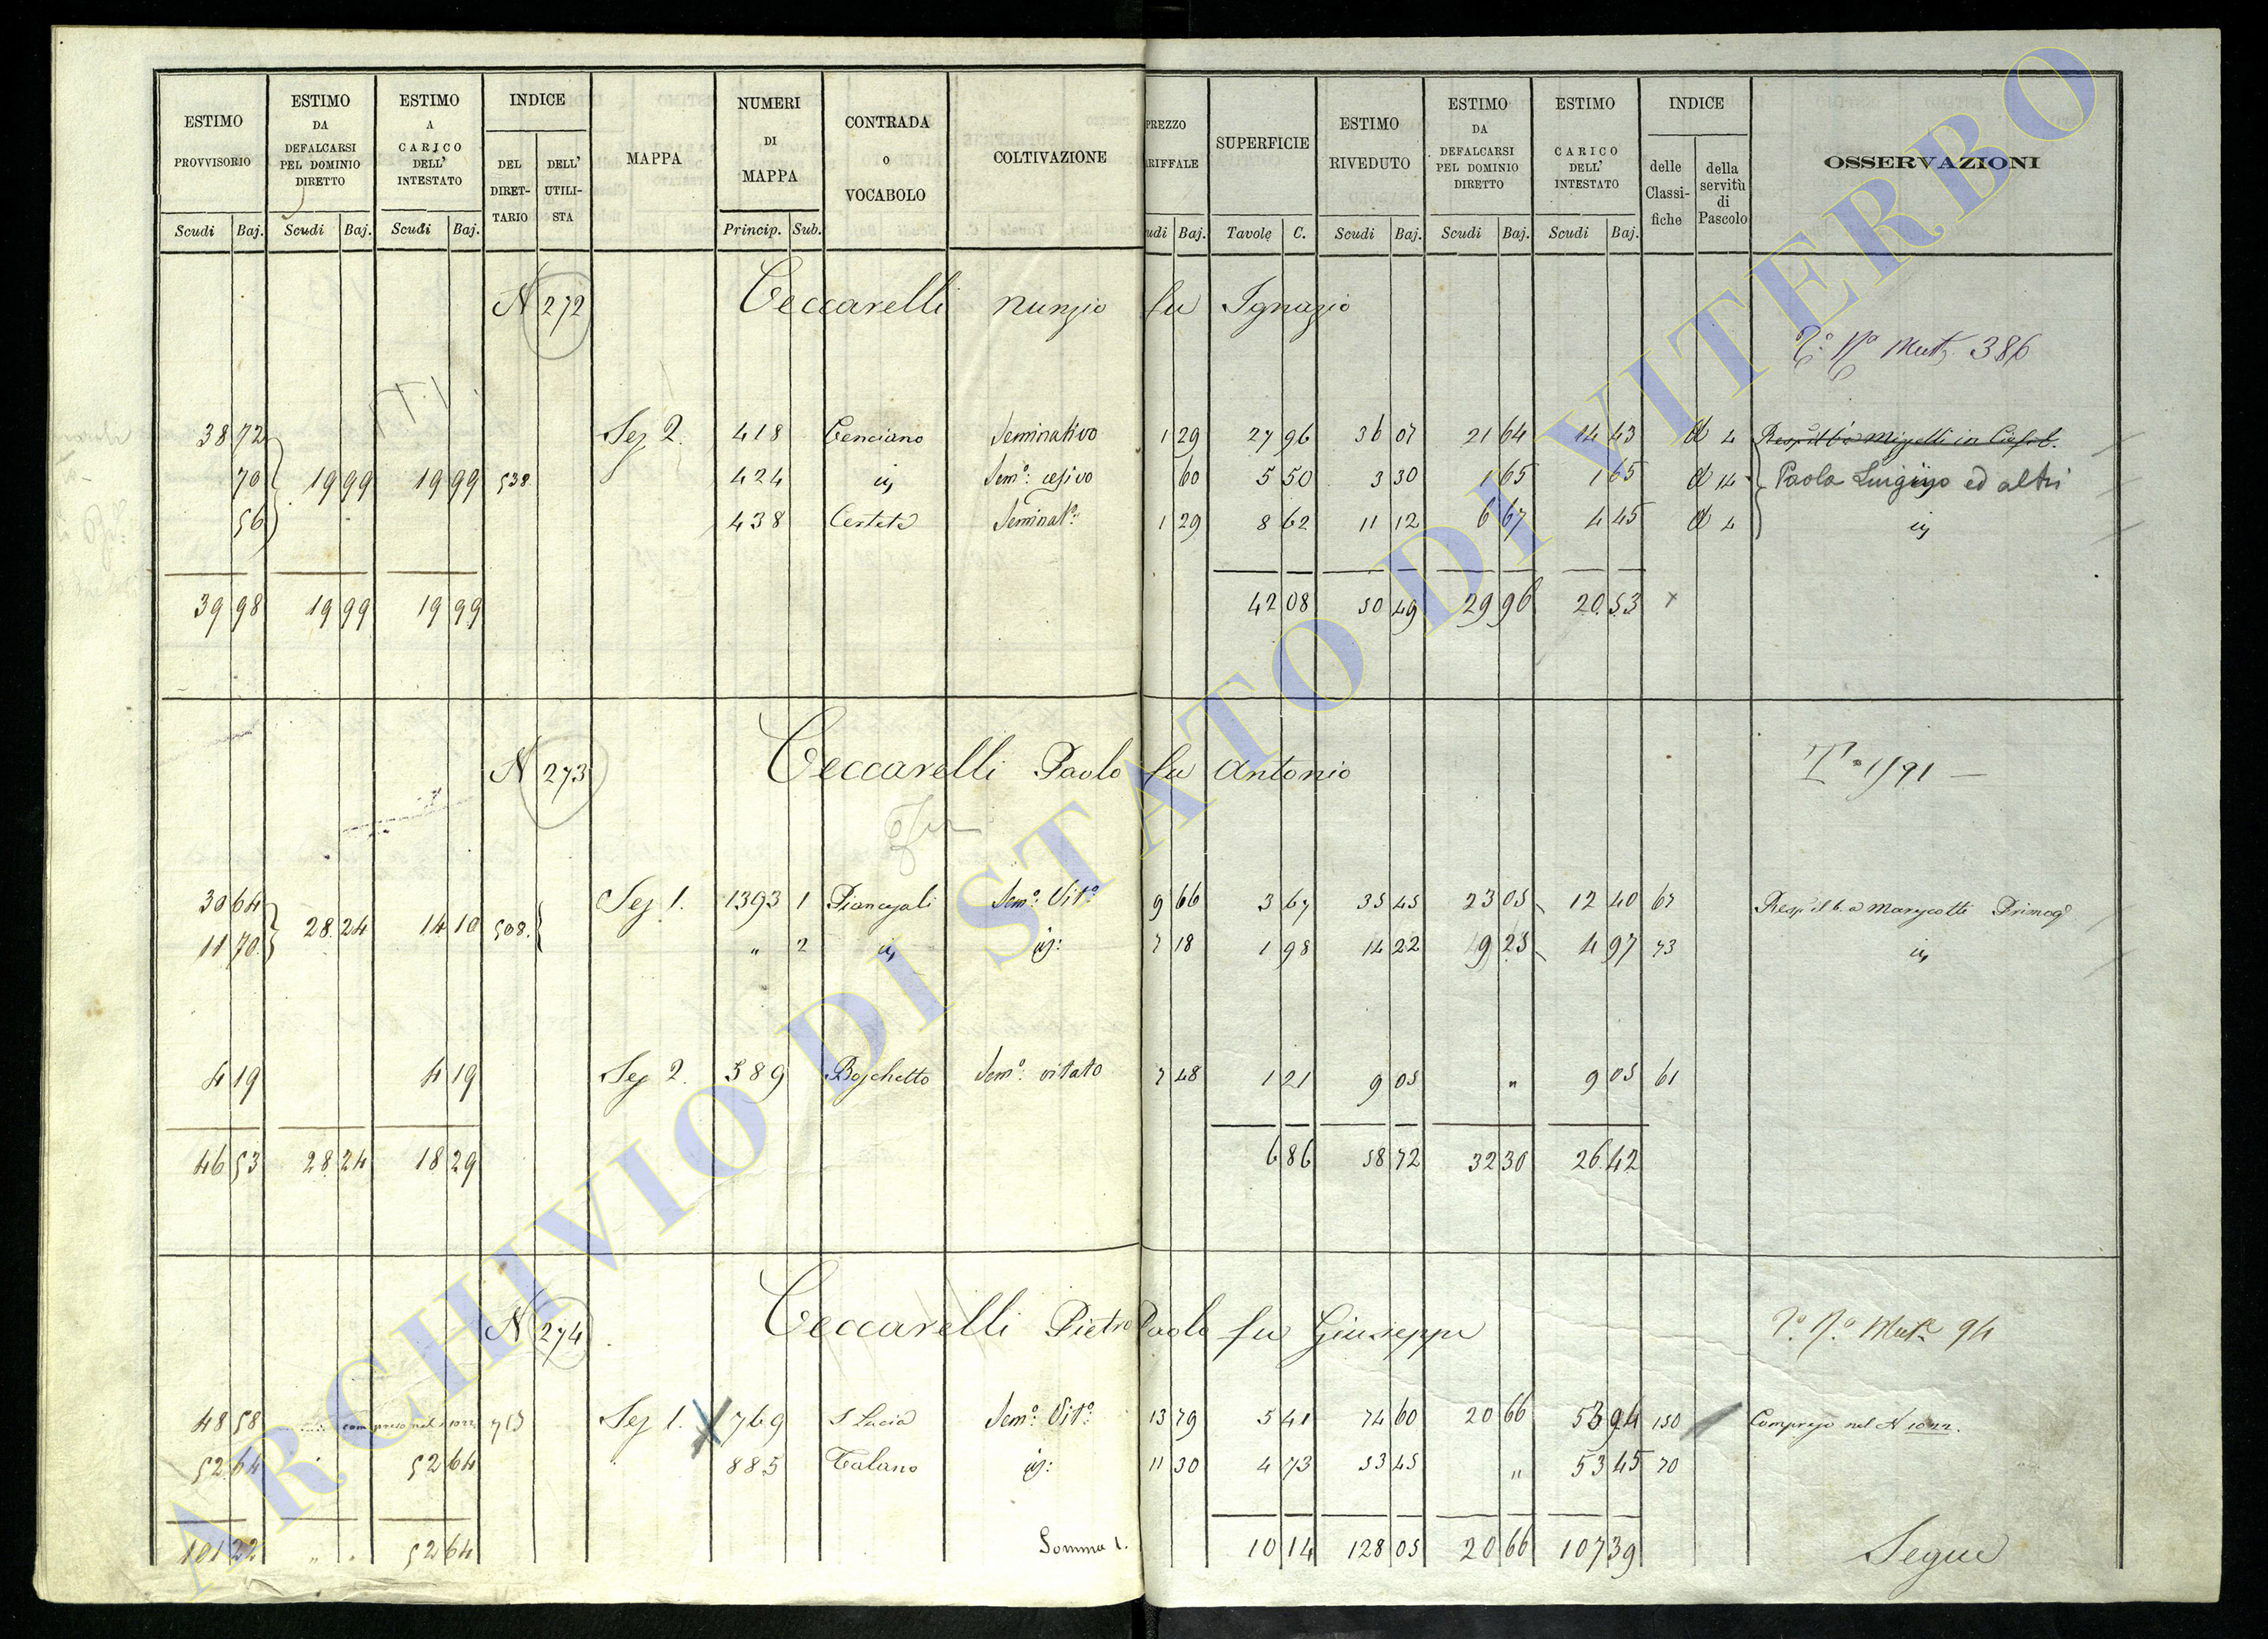 ESTIMO PROVVISORIO Scudi Baj.
ESTIMO DA DEFALCARSI PEL DOMINIO DIRETTO Scudi Baj.
ESTIMO A CARICO DELL' INTESTATO Scudi Baj.
INDICE DEL DIRETTARIO DELL' UTILISTA
MAPPA
NUMERI DI MAPPA Princip. Sub.
CONTRADA O VOCABOLO
COLTIVAZIONE
PREZZO ARIFFALE udi Baj.
SUPERFICIE Tavole C.
ESTIMO RIVEDUTO Scudi Baj.
ESTIMO DA DEFALCARSI PEL DOMINIO DIRETTO Scudi Baj.
ESTIMO A CARICO DELL' INTESTATO Scudi Baj.
INDICE delle Classifiche della servitù di Pascolo
OSSERVAZIONI
N 272 Ceccarelli Nunzio fu Ignazio
Mut. 386
38 72 Sez 2. 418 Cenciano Seminativo 1 29 27 96 36 07 21 64 14 43 4
70 19 99 19 99 538 424 Sem.º 60 5 50 3 30 1 65 1 65 14 Paola Luigi ed altri
56 438 Seminat.º 1 29 8 62 11 12 6 67 4 45 4
39 98 19 99 19 99 42 08 50 49 29 96 20 53
N 273 Ceccarelli Paolo fu Antonio
30 64 28 24 14 10 508. Sez 1. 1393 1 Sem.º Vit.º 9 66 3 67 35 45 23 05 12 40 67
11 70 " 2 7 18 1 98 14 22 9 25 4 97 73
4 19 4 19 Sez 2. 389 Boschetto Sem.º vitato 7 48 1 21 9 05 " 9 05 61
46 53 28 24 18 29 6 86 58 72 32 30 26 42
N 274 Ceccarelli Pietro Paolo fu Giuseppe
Mut.e 94
48 58 compreso nel 713 Sez 1. 769 S Lucia Sem.º Vit.º 13 79 5 41 74 60 20 66 53 94 150 Compreso nel N 1022.
52 64 52 64 885 Talano 11 30 4 73 53 45 " 53 45 70
101 22 " " 52 64 Somma 10 14 128 05 20 66 107 39 Segue
ARCHIVIO DI STATO DI VITERBO